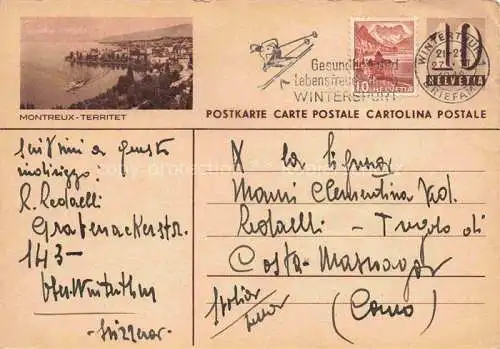 MONTREUX-TERRITET
Gesundheit und
Lebensfreude durch
WINTERSPORT
10
HELVETIA
WINTERTHUR 1
BRIEFAUFG.
10
HELVETIA
POSTKARTE CARTE POSTALE CARTOLINA POSTALE
Scrivimi a questo
indirizzo:
R. Redaelli
Grabenackerstr.
143 -
Oberwinterthur
- Svizzera -
X la Signora
Mauri Clementina Ved.
Redaelli - Tregolo di
Costa-Masnaga
(Como)
Italia